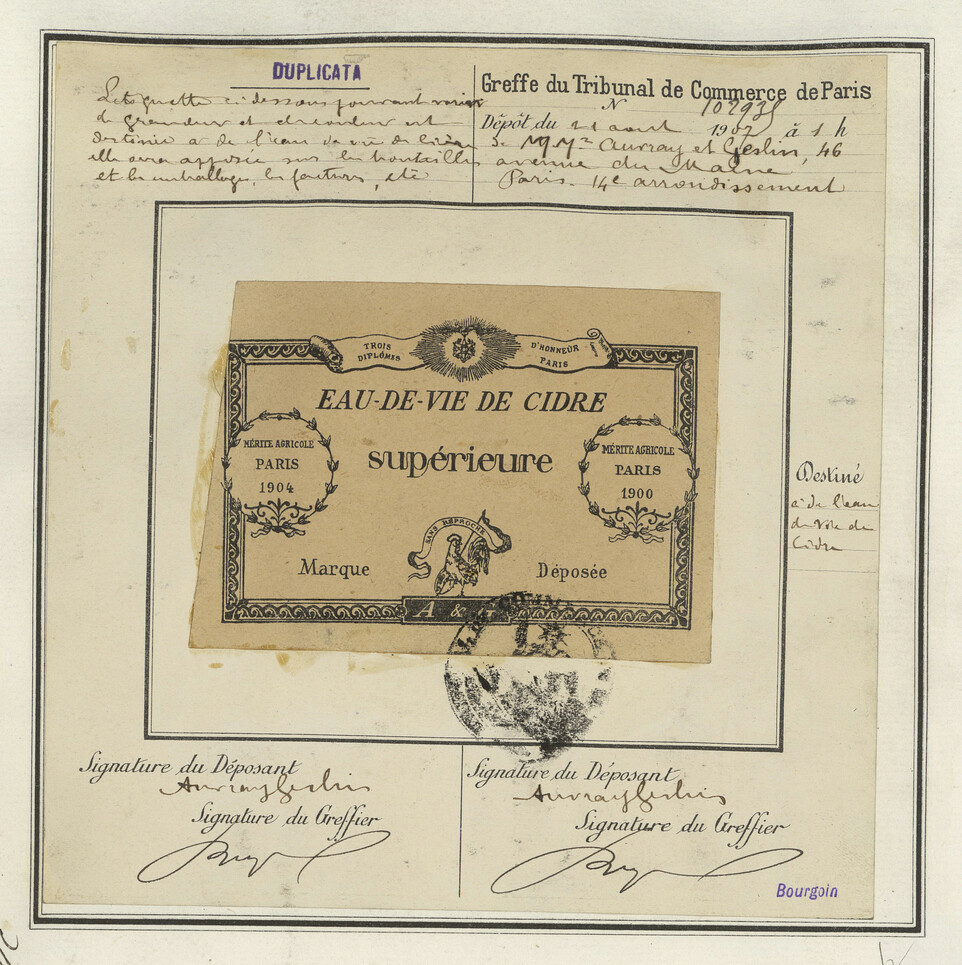 DUPLICATA
L'étiquette ci-dessous pouvant varier
de grandeur et de couleur est
destinée à de l'eau de vie de cidre
elle sera apposée sur les bouteilles
et les emballages, les factures, etc
Greffe du Tribunal de Commerce de Paris
N 102938
Dépôt du 21 aout 1907 à 1 h
de MMrs Auvray et Geslin, 46
avenue du Maine
Paris. 14e arrondissement
TROIS
DIPLÔMES
D'HONNEUR
PARIS
EAU-DE-VIE DE CIDRE
supérieure
MÉRITE AGRICOLE
PARIS
1904
MÉRITE AGRICOLE
PARIS
1900
SANS REPROCHE
Marque
Déposée
A & G
Destiné
à de l'eau
de Vie de
Cidre
Signature du Déposant
Auvray Geslin
Signature du Greffier
Signature du Déposant
Auvray Geslin
Signature du Greffier
Bourgoin